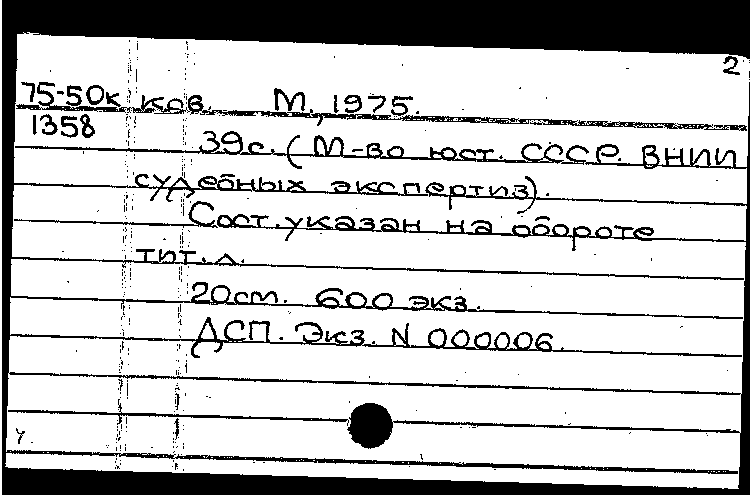 2
75-50к ков. М., 1975.
1358 39с. (М-во юст. СССР. ВНИИ
судебных экспертиз).
Сост. указан на обороте
тит. л.
20см. 600 экз.
ДСП. Экз. N 000006.